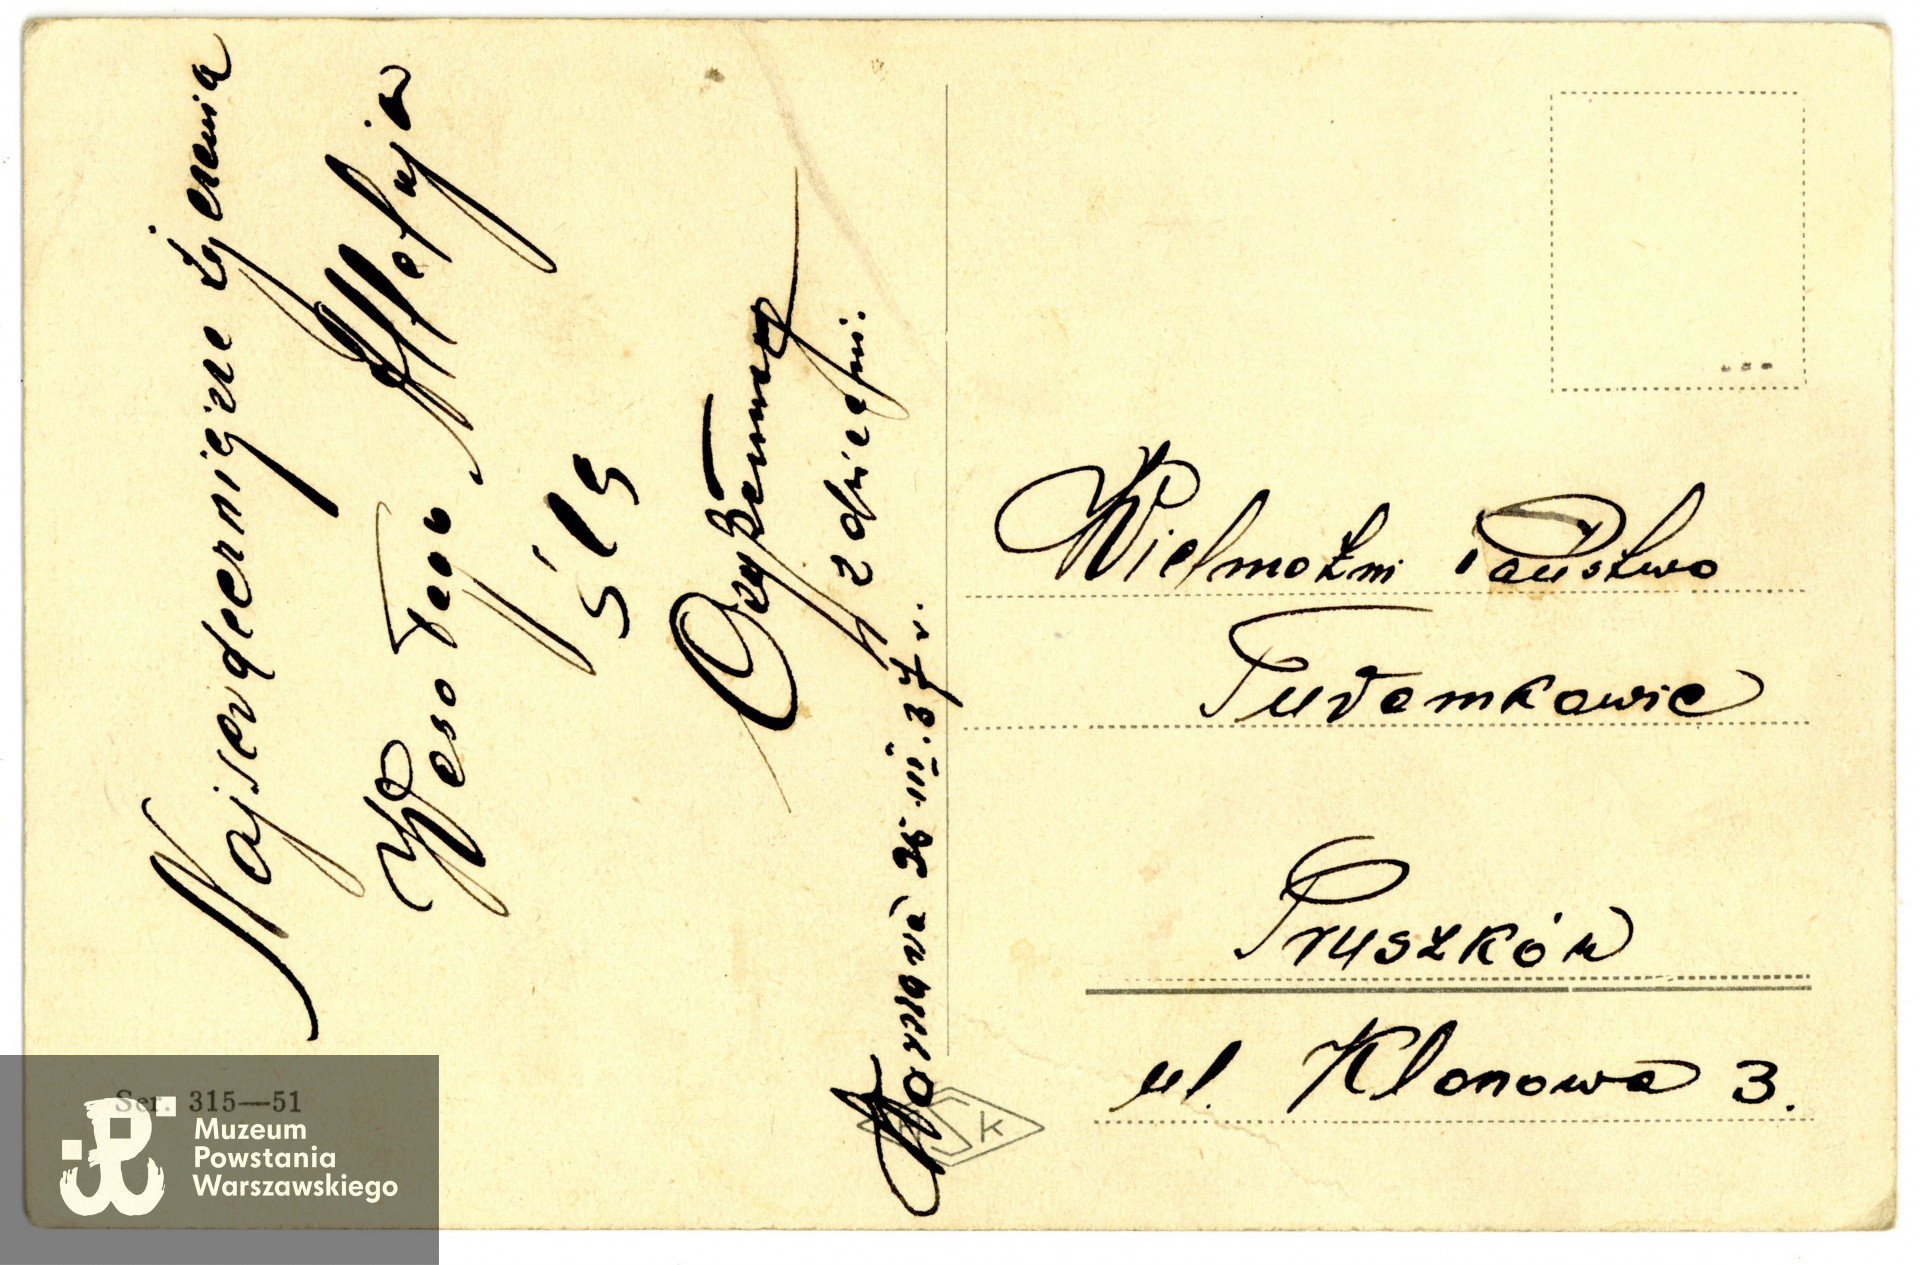 Najserdeczniejsze życzenia
Wesołego Alleluja
śle
z dziećmi.
Warszawa 25 III. 37 r.
Wielmożni Państwo
Pruszków
ul. Klonowa 3.
Ser. 315—51
Muzeum
Powstania
Warszawskiego